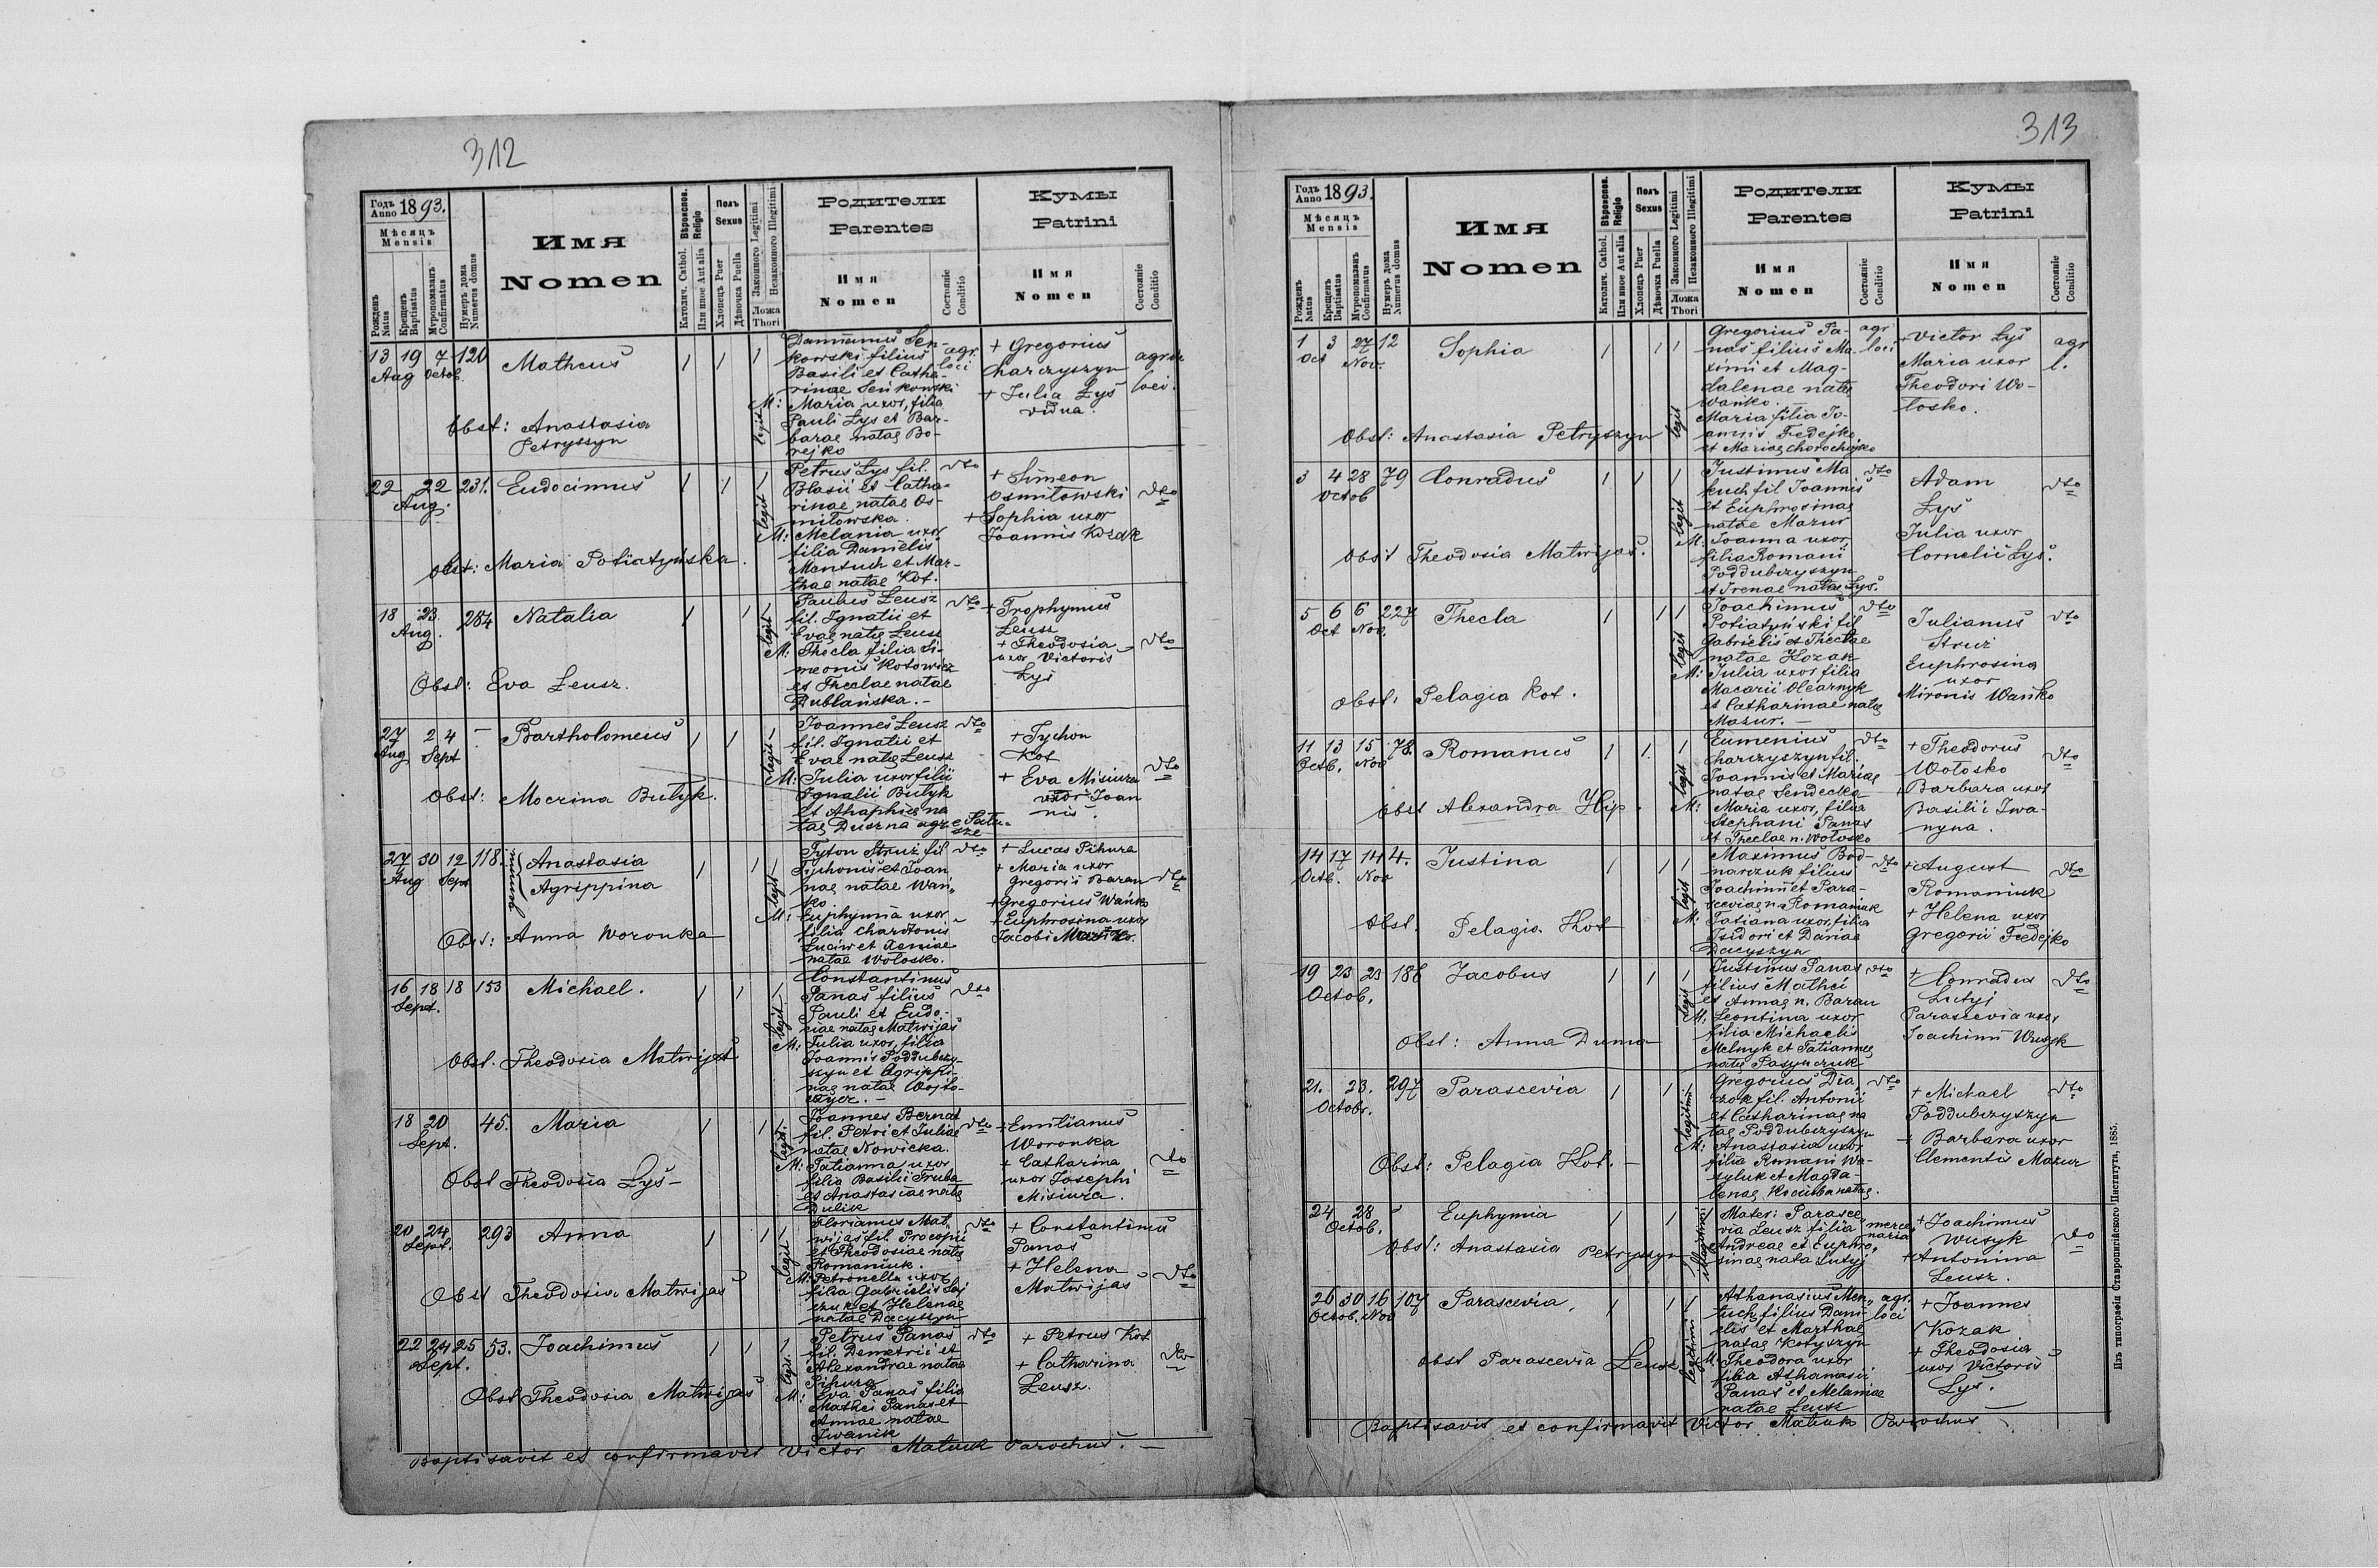 312
Годъ Anno 1893.
Мѣсяцъ Mensis
Рожденъ Natus
Крещенъ Baptisatus
Муропомазанъ Confirmatus
Нумеръ дома Numerus domus
Имя Nomen
Вѣроиспов. Religio
Католич. Cathol.
Или иное Aut alia
Полъ Sexus
Хлопецъ Puer
Дѣвочка Puella
Законного Legitimi
Незаконного Illegitimi
Ложа Thori
Родители Parentes
Имя Nomen
Состояніе Conditio
Кумы Patrini
Имя Nomen
Состояніе Conditio
13 19 7 120 Matheus
Aug Octob.
Obst: Anastasia
Petryszyn
legit
Sen-
kowski filius
Basili et Catha-
rinae Senkowski
M: Maria uxor, filia
Pauli Łyś et Bar-
barae natae Bo-
rejko
agr. loci
+ Gregorius
Charczyszyn
+ Julia Łyś
vidua.
loci.
22 22 231. Eudocimus
Aug.
Obst: Maria Potiatynska.
legit
Petrus Łyś fil.
Blasii et Catha-
rinae natae Os-
miłowska.
M: Melania uxor
filia Danielis
Mentuch et Mar-
thae natae Kot.
dto
+ Simeon
Osmiłowski
+ Sophia uxor
Joannis Kozak
dto
18 23 284 Natalia
Aug.
Obst: Eva Leusz.
legit
Paulus Leusz
fil. Ignatii et
Evae natae Leusz
M: Thecla filia Si-
meonis Kotowicz
et Theclae natae
Dublańska. -
dto
+ Trophymus
Leusz
+ Theodosia
uxor Victoris
Łyś
dto
27 2 4 - Bartholomeus
Aug Sept
Obst: Mocrina Butyk.
legit
Joannes Leusz
fil. Ignatii et
Evae natae Leusz
M: Julia uxor filii
Ignatii Butyk
et Ahaphiae na
tae Duszna
dto
+ Tychon
Kot
+ Eva Misiura
uxor Joan
nis.
dto
27 30 12 118. Anastasia
Aug Sept
gemini
Agrippina
Obst: Anna Woronka
legit
Tyton Struź fil
Tiphonis et Joan
nae natae Wań
ko
M: Euphymia uxor
filia Charitonis
et Xeniae
natae Wołosko.
dto
+ Lucas Pihura
+ Maria uxor
Gregorii Baran
+ Gregorius Wańko
+ Euphrosina uxor
Jacobi
dto
16 18 18 153 Michael.
Sept.
Obst. Theodosia Matwijas
legit
Constantinus
Panas filius
Pauli et Eudo-
ciae natae Matwijas
M: Julia uxor, filia
Joannis Poddubczy-
szyn et Agrippi-
nae natae
dto
18 20 45. Maria
Sept.
Obst Theodosia Łyś -
legit.
Joannes Bernat
fil. Petri et Juliae
natae Nowicka.
M: Tatianna uxor
filia Basilii Truba
et Anastasiae natae
Dulik
dto
+ Emilianus
Woronka
+ Catharina
uxor Josephi
Misiura.
dto
20 24 293 Anna
Sept.
Obst Theodosia Matwijas
legit
Florianus Mat-
wijas fil. Procopii
et Theodosiae natae
Romaniuk.
M: Petronella uxor
filia Gabrielis
et Helenae
natae Dacyszyn
dto
+ Constantinus
Panas
+ Helena
Matwijas
dto
22 24 25 53. Joachimus
Sept.
Obst Theodosia Matwijas
legit.
Petrus Panas
fil. Demetrii et
Alexandrae natae
Pihura
M: Eva Panas filia
Mathei Panas et
Annae natae
Iwanik
dto
+ Petrus Kot
+ Catharina
Leusz.
dto
Baptisavit et confirmavit Victor Matiuk Parochus. -
313
Годъ Anno 1893.
Мѣсяцъ Mensis
Рожденъ Natus
Крещенъ Baptisatus
Муропомазанъ Confirmatus
Нумеръ дома Numerus domus
Имя Nomen
Вѣроиспов. Religio
Католич. Cathol.
Или иное Aut alia
Полъ Sexus
Хлопецъ Puer
Дѣвочка Puella
Законного Legitimi
Незаконного Illegitimi
Ложа Thori
Родители Parentes
Имя Nomen
Состояніе Conditio
Кумы Patrini
Имя Nomen
Состояніе Conditio
1 3 27 12 Sophia
Oct Nov.
Obst: Anastasia Petryszyn
legit
Gregorius Pa-
nas filius Ma-
ximi et Mag-
dalenae natae
Wańko. -
Maria filia Jo-
annis Fedejko
et Mariae
agr loci
+ Victor Łyś
Maria uxor
Theodori Wo-
łosko.
agr l.
3 4 28 79 Conradus
Octob
Obst Theodosia Matwijas.
legit
Justinus Ma
kuch fil Joannis
et Euphrosinae
natae Mazur
M: Joanna uxor
filia Romani
Poddubczyszyn
et Irenae natae Łyś.
dto
Adam
Łyś
Julia uxor
Cornelii Łyś.
dto
5 6 6 227 Thecla
Oct Nov.
Obst: Pelagia Kot.
legit
Joachimus
Potiatyński fil
Gabrielis et Theclae
natae Kozak
M: Julia uxor filia
Macarii Olearnyk
et Catharinae natae
Mazur. -
dto
Julianus
Struź
Euphrosina
uxor
Mironis Wańko
dto
11 13 15 78. Romanus
Octb. Nov
Obst Alexandra Hip.
legit
Eumenius
Charczyszyn fil.
Joannis et Mariae
natae Sendecka
M: Maria uxor, filia
Stephani Panas
et Theclae n. Wołosko
dto
+ Theodorus
Wołosko
+ Barbara uxor
Basilii Iwa-
nyna.
dto
14 17 14 4. Justina
Octb. Nov
Obst. Pelagia Kot
legit
Maximus Bod-
narczuk filius
Joachimi et Para-
sceviae n. Romaniuk
M: Tatiana uxor, filia
Isidori et Dariae
Dacyszyn
dto
+ August
Romaniuk
+ Helena uxor
Gregorii Fedejko
dto
19 23 23 186 Jacobus
Octob.
Obst: Anna Duma
legit
Justinus Panas
filius Mathei
et Annae n. Baran
M: Leontina uxor
filia Michaelis
Melnyk et Tatiannae
natae Pasynczuk
dto
+ Conradus
Lutyj
Parascevia uxor
Joachimi Wusyk
dto
21. 23. 297 Parascevia
Octobr.
Obst: Pelagia Kot. -
legitimi
Gregorius Dia
czok fil. Antonii
et Catharinae na
tae Poddubczyszyn
M: Anastasia uxor
filia Romani Wa-
syluk et Magda-
lenae Kociuba natae.
dto
+ Michael
Poddubczyszyn
+ Barbara uxor
Clementis Mazur
dto
24 28 - Euphymia
Octob.
Obst: Anastasia Petryszyn
illegitimi
Mater: Parasce
via Leusz filia
Andreae et Euphro-
sinae nata Lutyj
merce naria
+ Joachimus
Wusyk
+ Antonina
Leusz.
dto
26 30 16 107 Parascevia.
Octob. Nov
Obst Parascevia Leusz
legitimi
Athanasius Men-
tuch filius Dani-
elis et Marthae
natae Kotyszyn
M: Theodora uxor
filia Athanasii
Panas et Melaniae
natae Leusz
agr. loci
+ Joannes
Kozak
+ Theodosia
uxor Victoris
Łyś.
Baptisavit et confirmavit Victor Matiuk Parochus -
Изъ типографіи Ставропигійского Института, 1885.